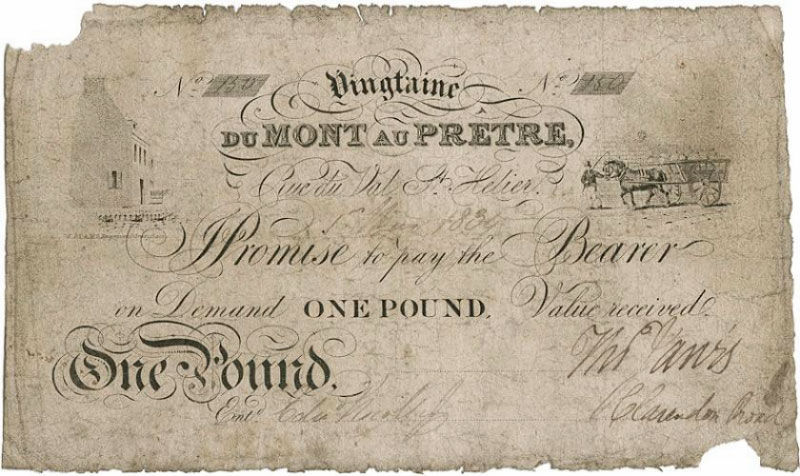 No. 150 Vingtaine No. 150
DU MONT AU PRETRE,
Rue du Val St. Helier.
1834
I Promise to pay the Bearer
on Demand ONE POUND. Value received.
One Pound.
Entd.
Clarendon Road